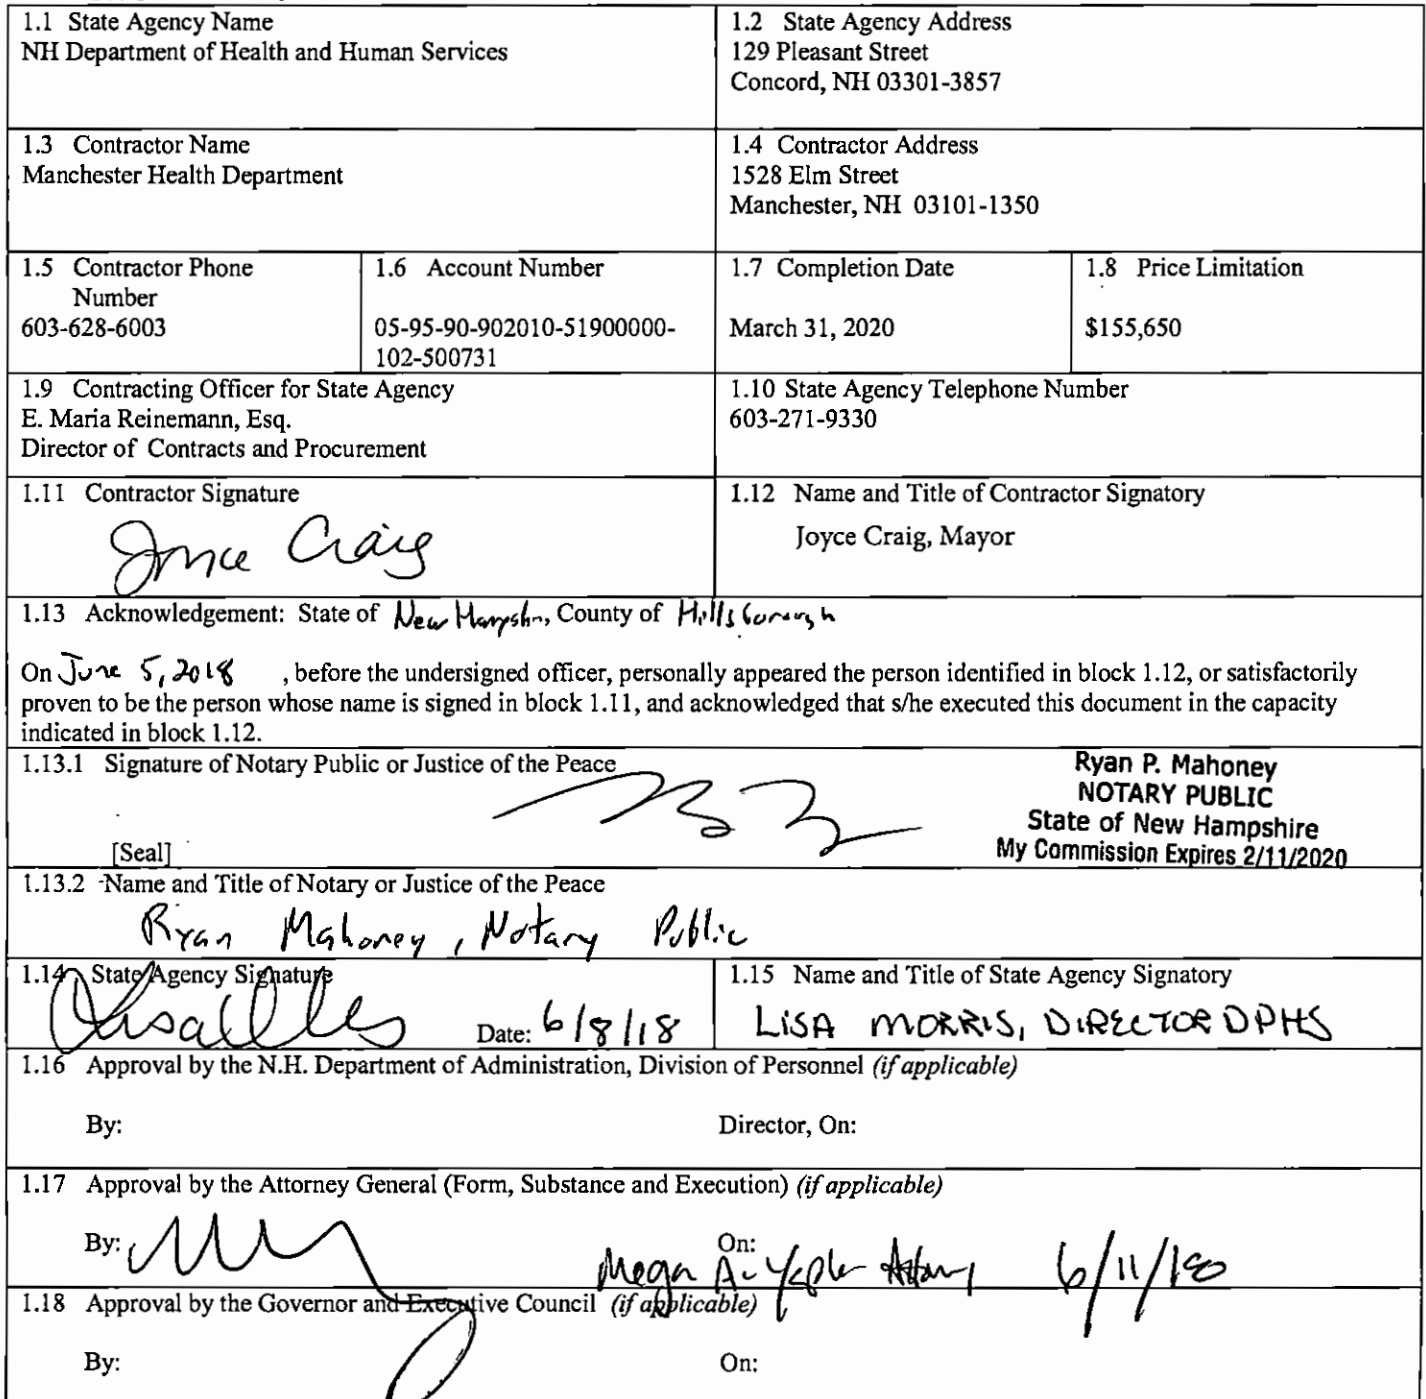 1.1 State Agency Name
NH Department of Health and Human Services
1.2 State Agency Address
129 Pleasant Street
Concord, NH 03301-3857
1.3 Contractor Name
Manchester Health Department
1.4 Contractor Address
1528 Elm Street
Manchester, NH 03101-1350
1.5 Contractor Phone
Number
603-628-6003
1.6 Account Number
05-95-90-902010-51900000-
102-500731
1.7 Completion Date
March 31, 2020
1.8 Price Limitation
$155,650
1.9 Contracting Officer for State Agency
E. Maria Reinemann, Esq.
Director of Contracts and Procurement
1.10 State Agency Telephone Number
603-271-9330
1.11 Contractor Signature
Joyce Craig
1.12 Name and Title of Contractor Signatory
Joyce Craig, Mayor
1.13 Acknowledgement: State of New Hampshire, County of Hillsborough
On June 5, 2018 , before the undersigned officer, personally appeared the person identified in block 1.12, or satisfactorily
proven to be the person whose name is signed in block 1.11, and acknowledged that s/he executed this document in the capacity
indicated in block 1.12.
1.13.1 Signature of Notary Public or Justice of the Peace
[Seal]
Ryan P. Mahoney
NOTARY PUBLIC
State of New Hampshire
My Commission Expires 2/11/2020
1.13.2 Name and Title of Notary or Justice of the Peace
Ryan Mahoney, Notary Public
1.14 State Agency Signature
Date: 6/8/18
1.15 Name and Title of State Agency Signatory
LISA MORRIS, DIRECTOR DPHS
1.16 Approval by the N.H. Department of Administration, Division of Personnel (if applicable)
By:
Director, On:
1.17 Approval by the Attorney General (Form, Substance and Execution) (if applicable)
By:
On:
Megan A. 6/11/18
1.18 Approval by the Governor and Executive Council (if applicable)
By:
On: